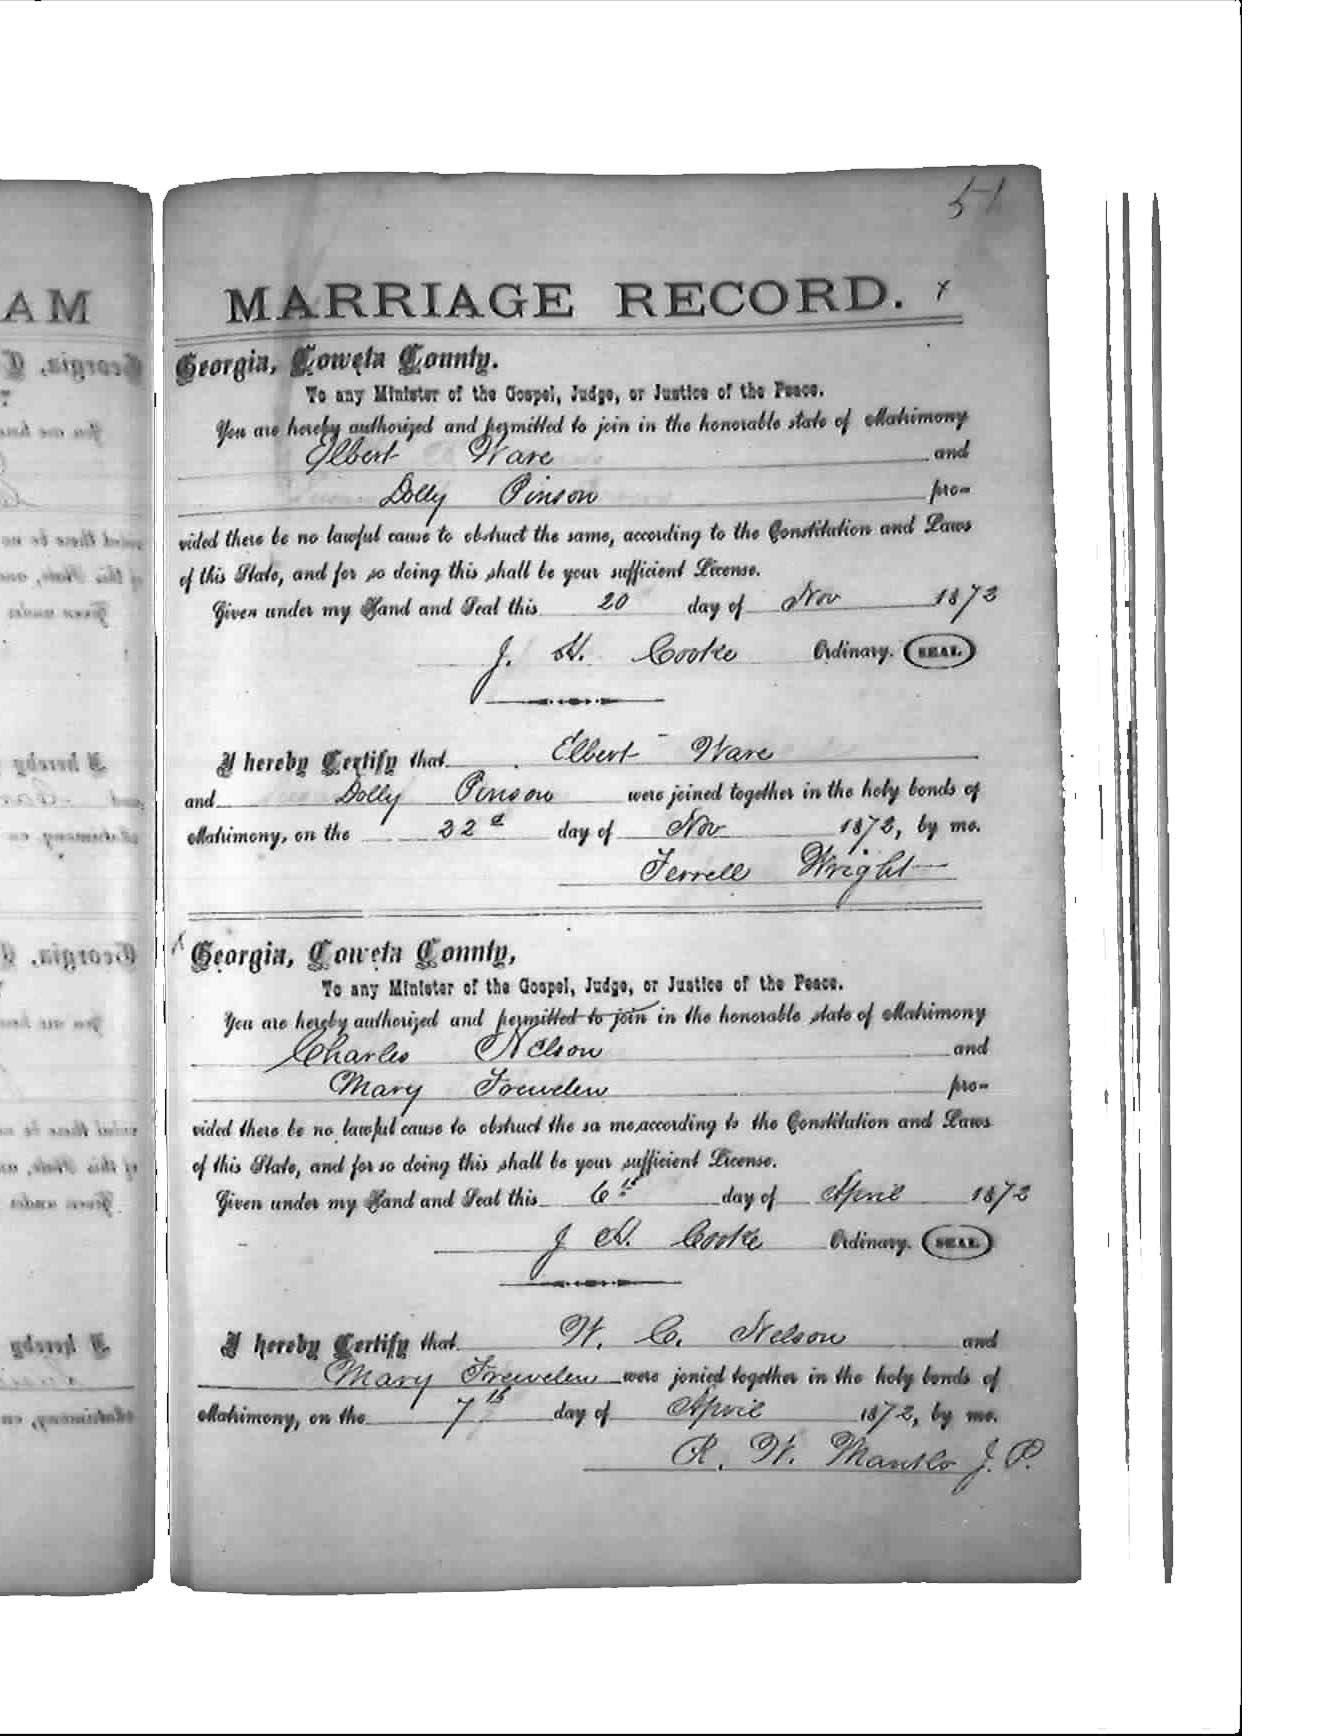 51
MARRIAGE RECORD. x
Georgia, Coweta County.
To any Minister of the Gospel, Judge, or Justice of the Peace.
You are hereby authorized and permitted to join in the honorable state of Matrimony
Elbert Ware and
Dolly Pinson pro-
vided there be no lawful cause to obstruct the same, according to the Constitution and Laws
of this State, and for so doing this shall be your sufficient License.
Given under my Hand and Seal this 20 day of Nov 1872
J. H. Cooke Ordinary. SEAL
I hereby Certify that Elbert Ware
and Dolly Pinson were joined together in the holy bonds of
Matrimony, on the 22d day of Nov 1872, by me.
Terrell Wright
x Georgia, Coweta County,
To any Minister of the Gospel, Judge, or Justice of the Peace.
You are hereby authorized and permitted to join in the honorable state of Matrimony
Charles Nelson and
Mary pro-
vided there be no lawful cause to obstruct the sa me,according to the Constitution and Laws
of this State, and for so doing this shall be your sufficient License.
Given under my Hand and Seal this 6th day of April 1872
J H. Cooke Ordinary. SEAL
I hereby Certify that W. C. Nelson and
Mary were jonied together in the holy bonds of
Matrimony, on the 7th day of April 1872, by me.
R. W. J. P.